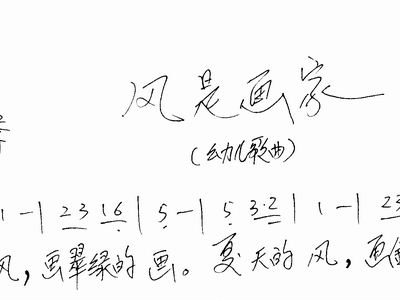 风是画家
(幼儿歌曲)
1 - | 2 3 1 6 | 5 - | 5 3·2 | 1 - | 2 3
风，画翠绿的画。夏天的风，画